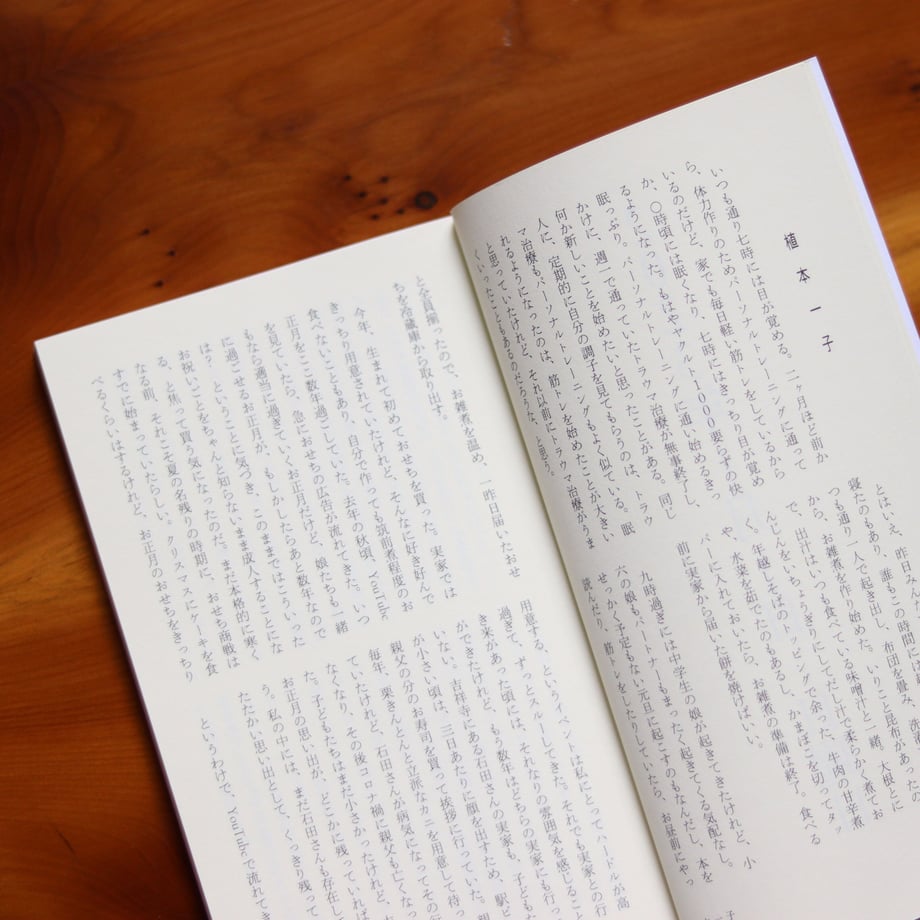 植本一子
いつも通り七時には目が覚める。二ヶ月ほど前か
ら、体力作りのためパーソナルトレーニングに通って
いるのだけど、家でも毎日軽い筋トレをしているから
か、〇時頃には眠くなり、七時にはきっちり目が覚め
るようになった。もはやヤクルト1000要らずの快
眠っぷり。パーソナルトレーニングに通い始めるきっ
かけに、週一で通っていたトラウマ治療が無事終了し、
何か新しいことを始めたいと思ったことがある。同じ
人に、定期的に自分の調子を見てもらうのは、トラウ
マ治療もパーソナルトレーニングもよく似ている。眠
れるようになったのは、筋トレを始めたことが大きい
と思っていたけれど、それ以前にトラウマ治療がうま
くいったこともあるのだろうな、と思う。
とはいえ、昨日み
寝たのもあり、誰も
つも通り一人で起き出し、布団を畳み、
から、お雑煮を作り始めた。いりこと昆布があった
で、出汁は、いつも食べている味噌汁と一緒、大根とに
んじんをいちょうぎりにしてだし汁で柔らかく煮てお
く。年越しそばのトッピングで余った、牛肉の甘辛煮
や、水菜を茹でたのもあるし、かまぼこを切ってタッ
パーに入れておいたら、お雑煮の準備は終了。食べる
前に実家から届いた餅を焼けばいい。
九時過ぎには中学生の娘が起きてきたけれど、小
六の娘もパートナーもまったく起きてくる気配なし。
せっかく予定もない元旦に起こすのもなんだし、本を
読んだり、筋トレをしたりしていたら、お昼前にやっ
と全員揃ったので、お雑煮を温め、一昨日届いたおせ
ちを冷蔵庫から取り出す。
今年、生まれて初めておせちを買った。実家では
きっちり用意されていたけれど、そんなに好き好んで
食べないこともあり、自分で作っても筑前煮程度のお
正月をここ数年過ごしていた。去年の秋頃、YouTube
を見ていたら、急におせちの広告が流れてきた。いつ
もなら適当に過ぎていくお正月だけど、娘たちも一緒
に過ごせるお正月が、もしかしたらあと数年なので
は？ ということに気づき、このままではこういった
お祝いごとをちゃんと知らないまま成人することにな
る、と焦って買う気になったのだ。まだ本格的に寒く
なる前、それこそ夏の名残りの時期に、おせち商戦は
すでに始まっていたらしい。クリスマスにケーキを食
べるくらいはするけれど、お正月のおせちをきっちり
用意する、というイベントは私にとってハードルが高
過ぎて、ずっとスルーしてきた。それでも実家との行
き来があった頃には、それなりの雰囲気を感じること
ができたけれど、もう数年はどちらの実家にも行っ
いない。吉祥寺にある石田さんの実家も、子どもた
が小さい頃は、三日あたりに顔を出すため、駅ビ
親父の分のお寿司を買って挨拶に行っていた。
毎年、栗きんとんと立派なカニを用意して待っ
ていたけれど、石田さんが病気になってその
なくなり、その後コロナ禍に親父も亡くな
た。子どもたちはまだ小さかったけれど、
お正月の思い出が、どこかに残っていれば
う。私の中には、まだ石田さんも存在し
たたかい思い出として、くっきり残って
というわけで、YouTubeで流れてき